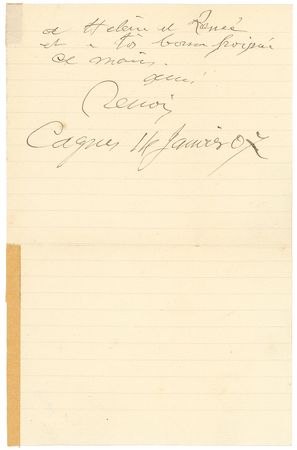 a Hélène et Renée
et a toi bonne poignée
de mains.
ami
Renoir
Cagnes 14 Janvier 07